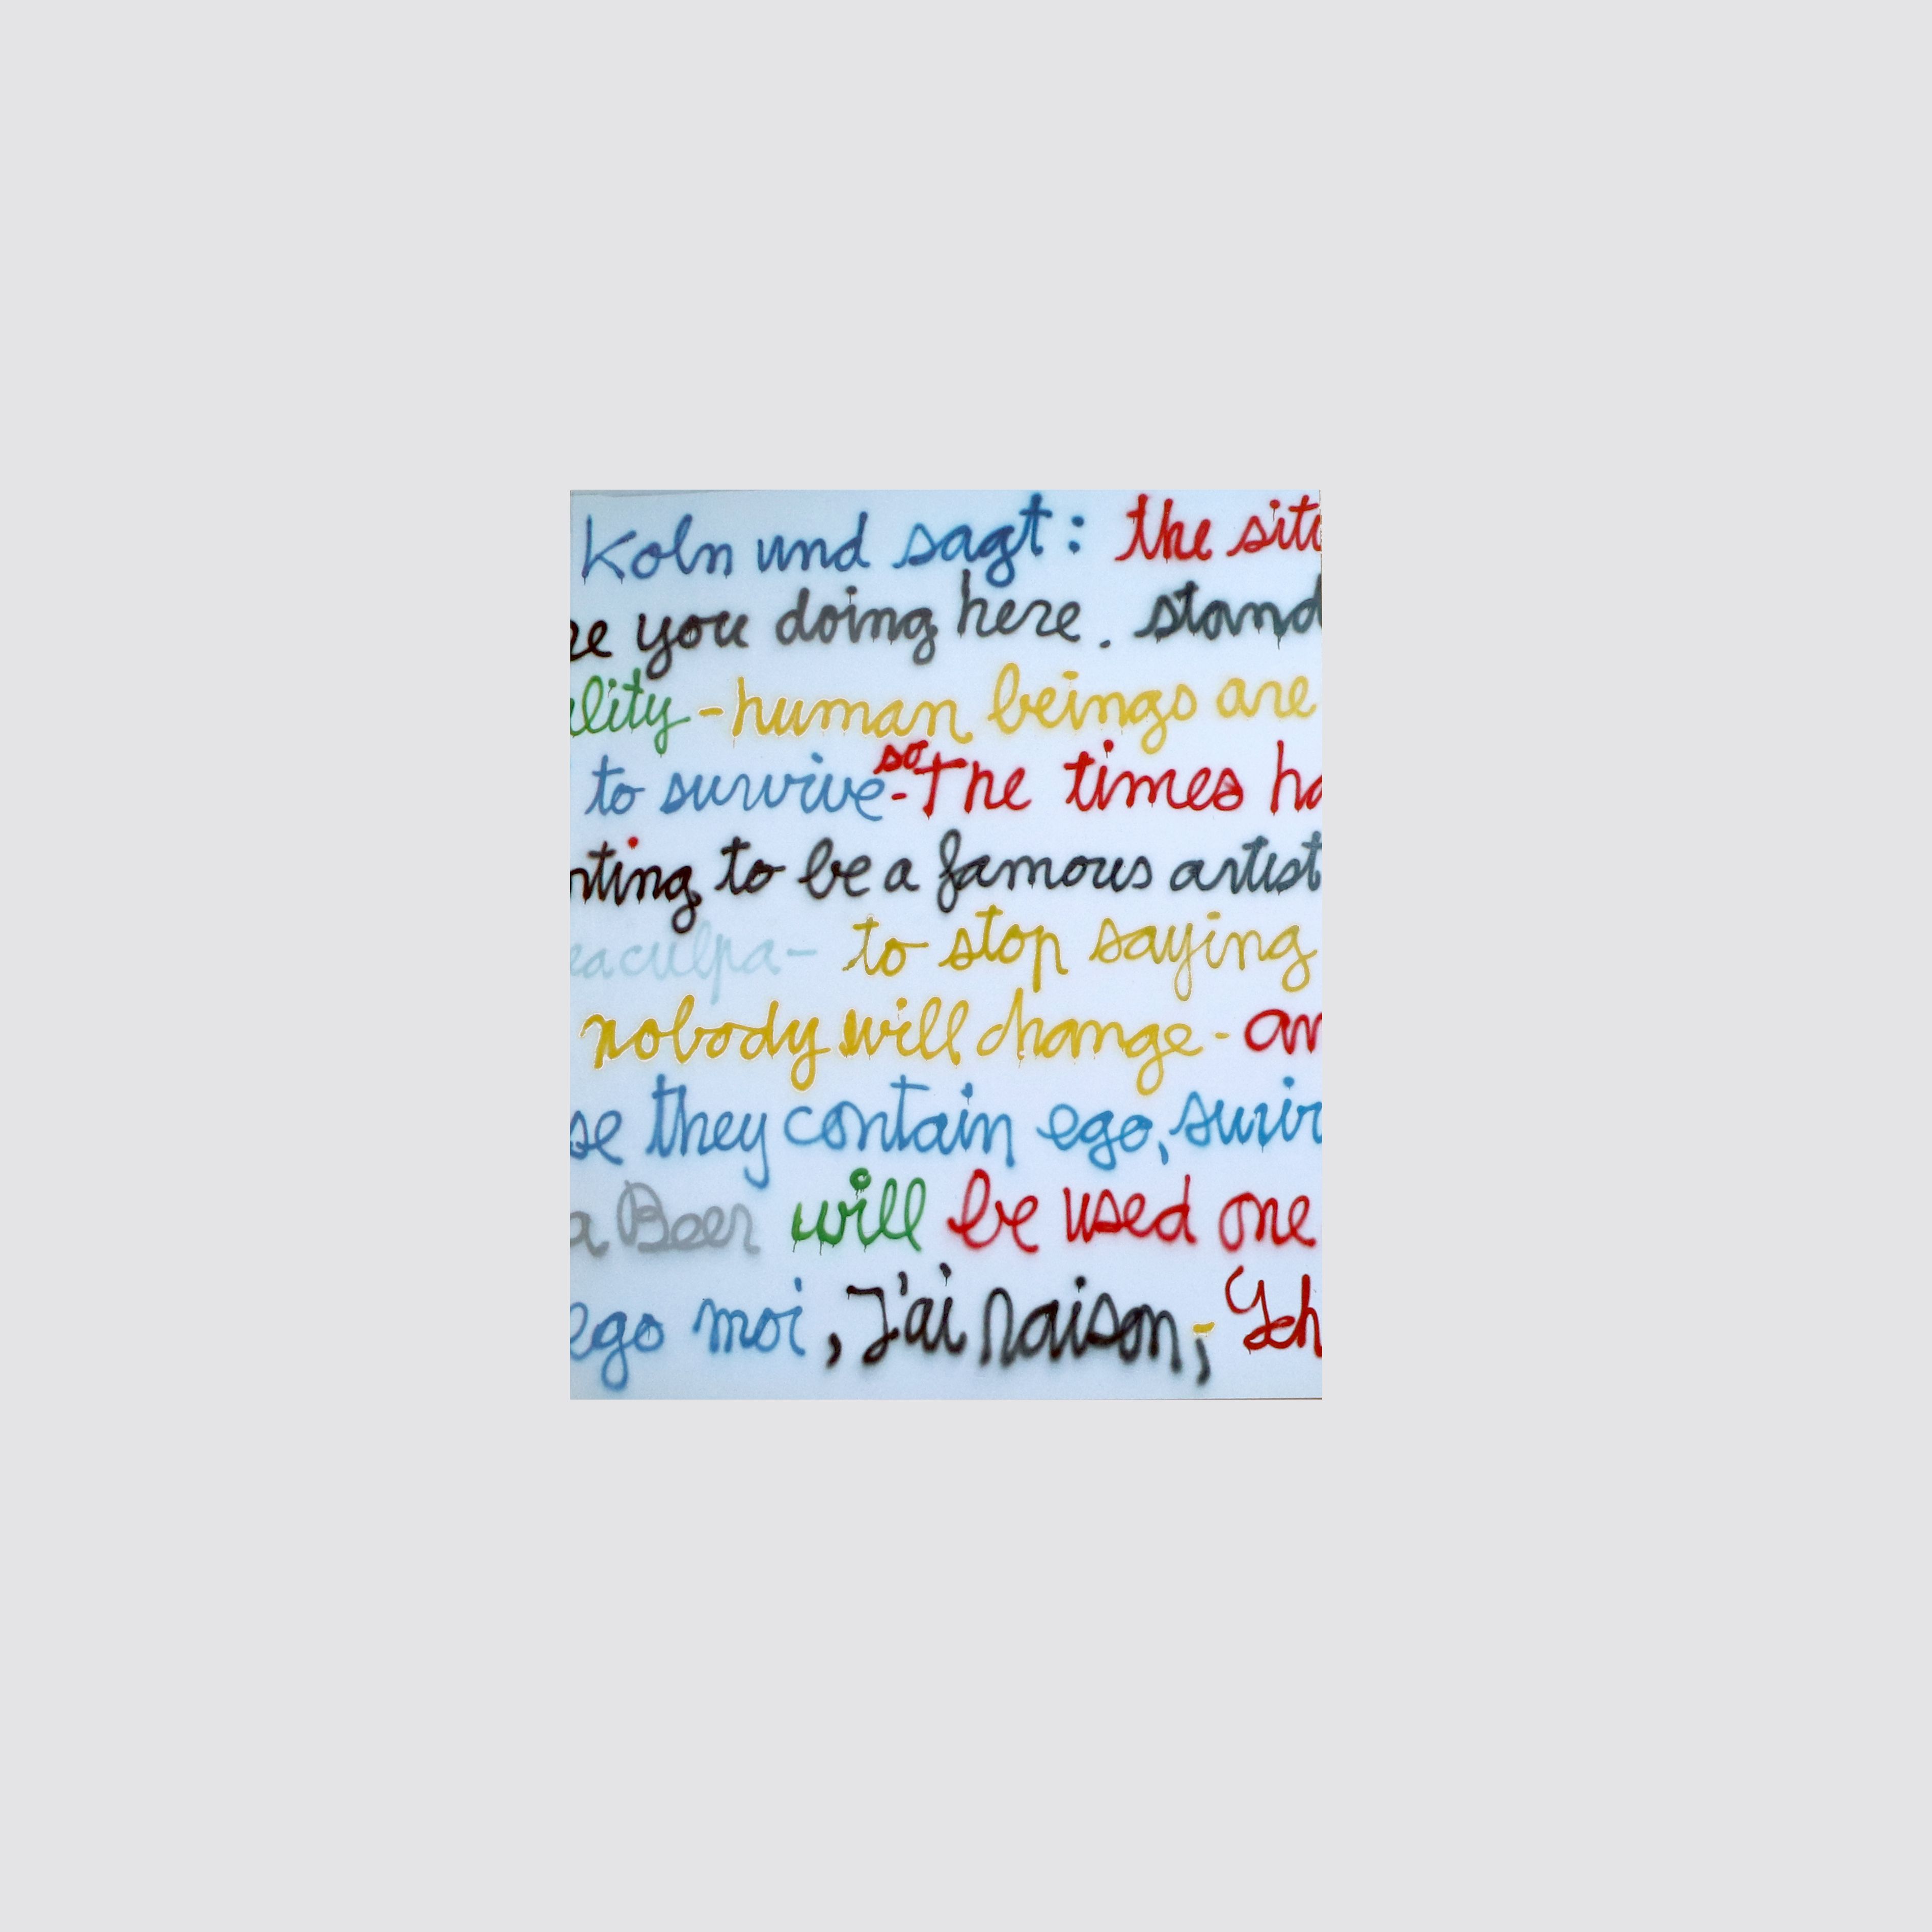 Koln und sagt: the situ
re you doing here. stand
ality - human beings are
to survive - so The times ha
nting to be a famous artist
eaculpa - to stop saying
nobody will change - an
se they contain ego, surv
a Beer will be used one
ego moi, J'ai raison, - Ich